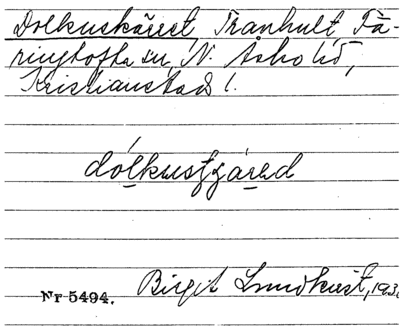 Dolkuskärret, Tranhult, Fä-
ringtofta sn, N. Åsbo hd,
Kristianstads l.
dólkustgáred
Nr 5494. Birgit Lundkvist, 193